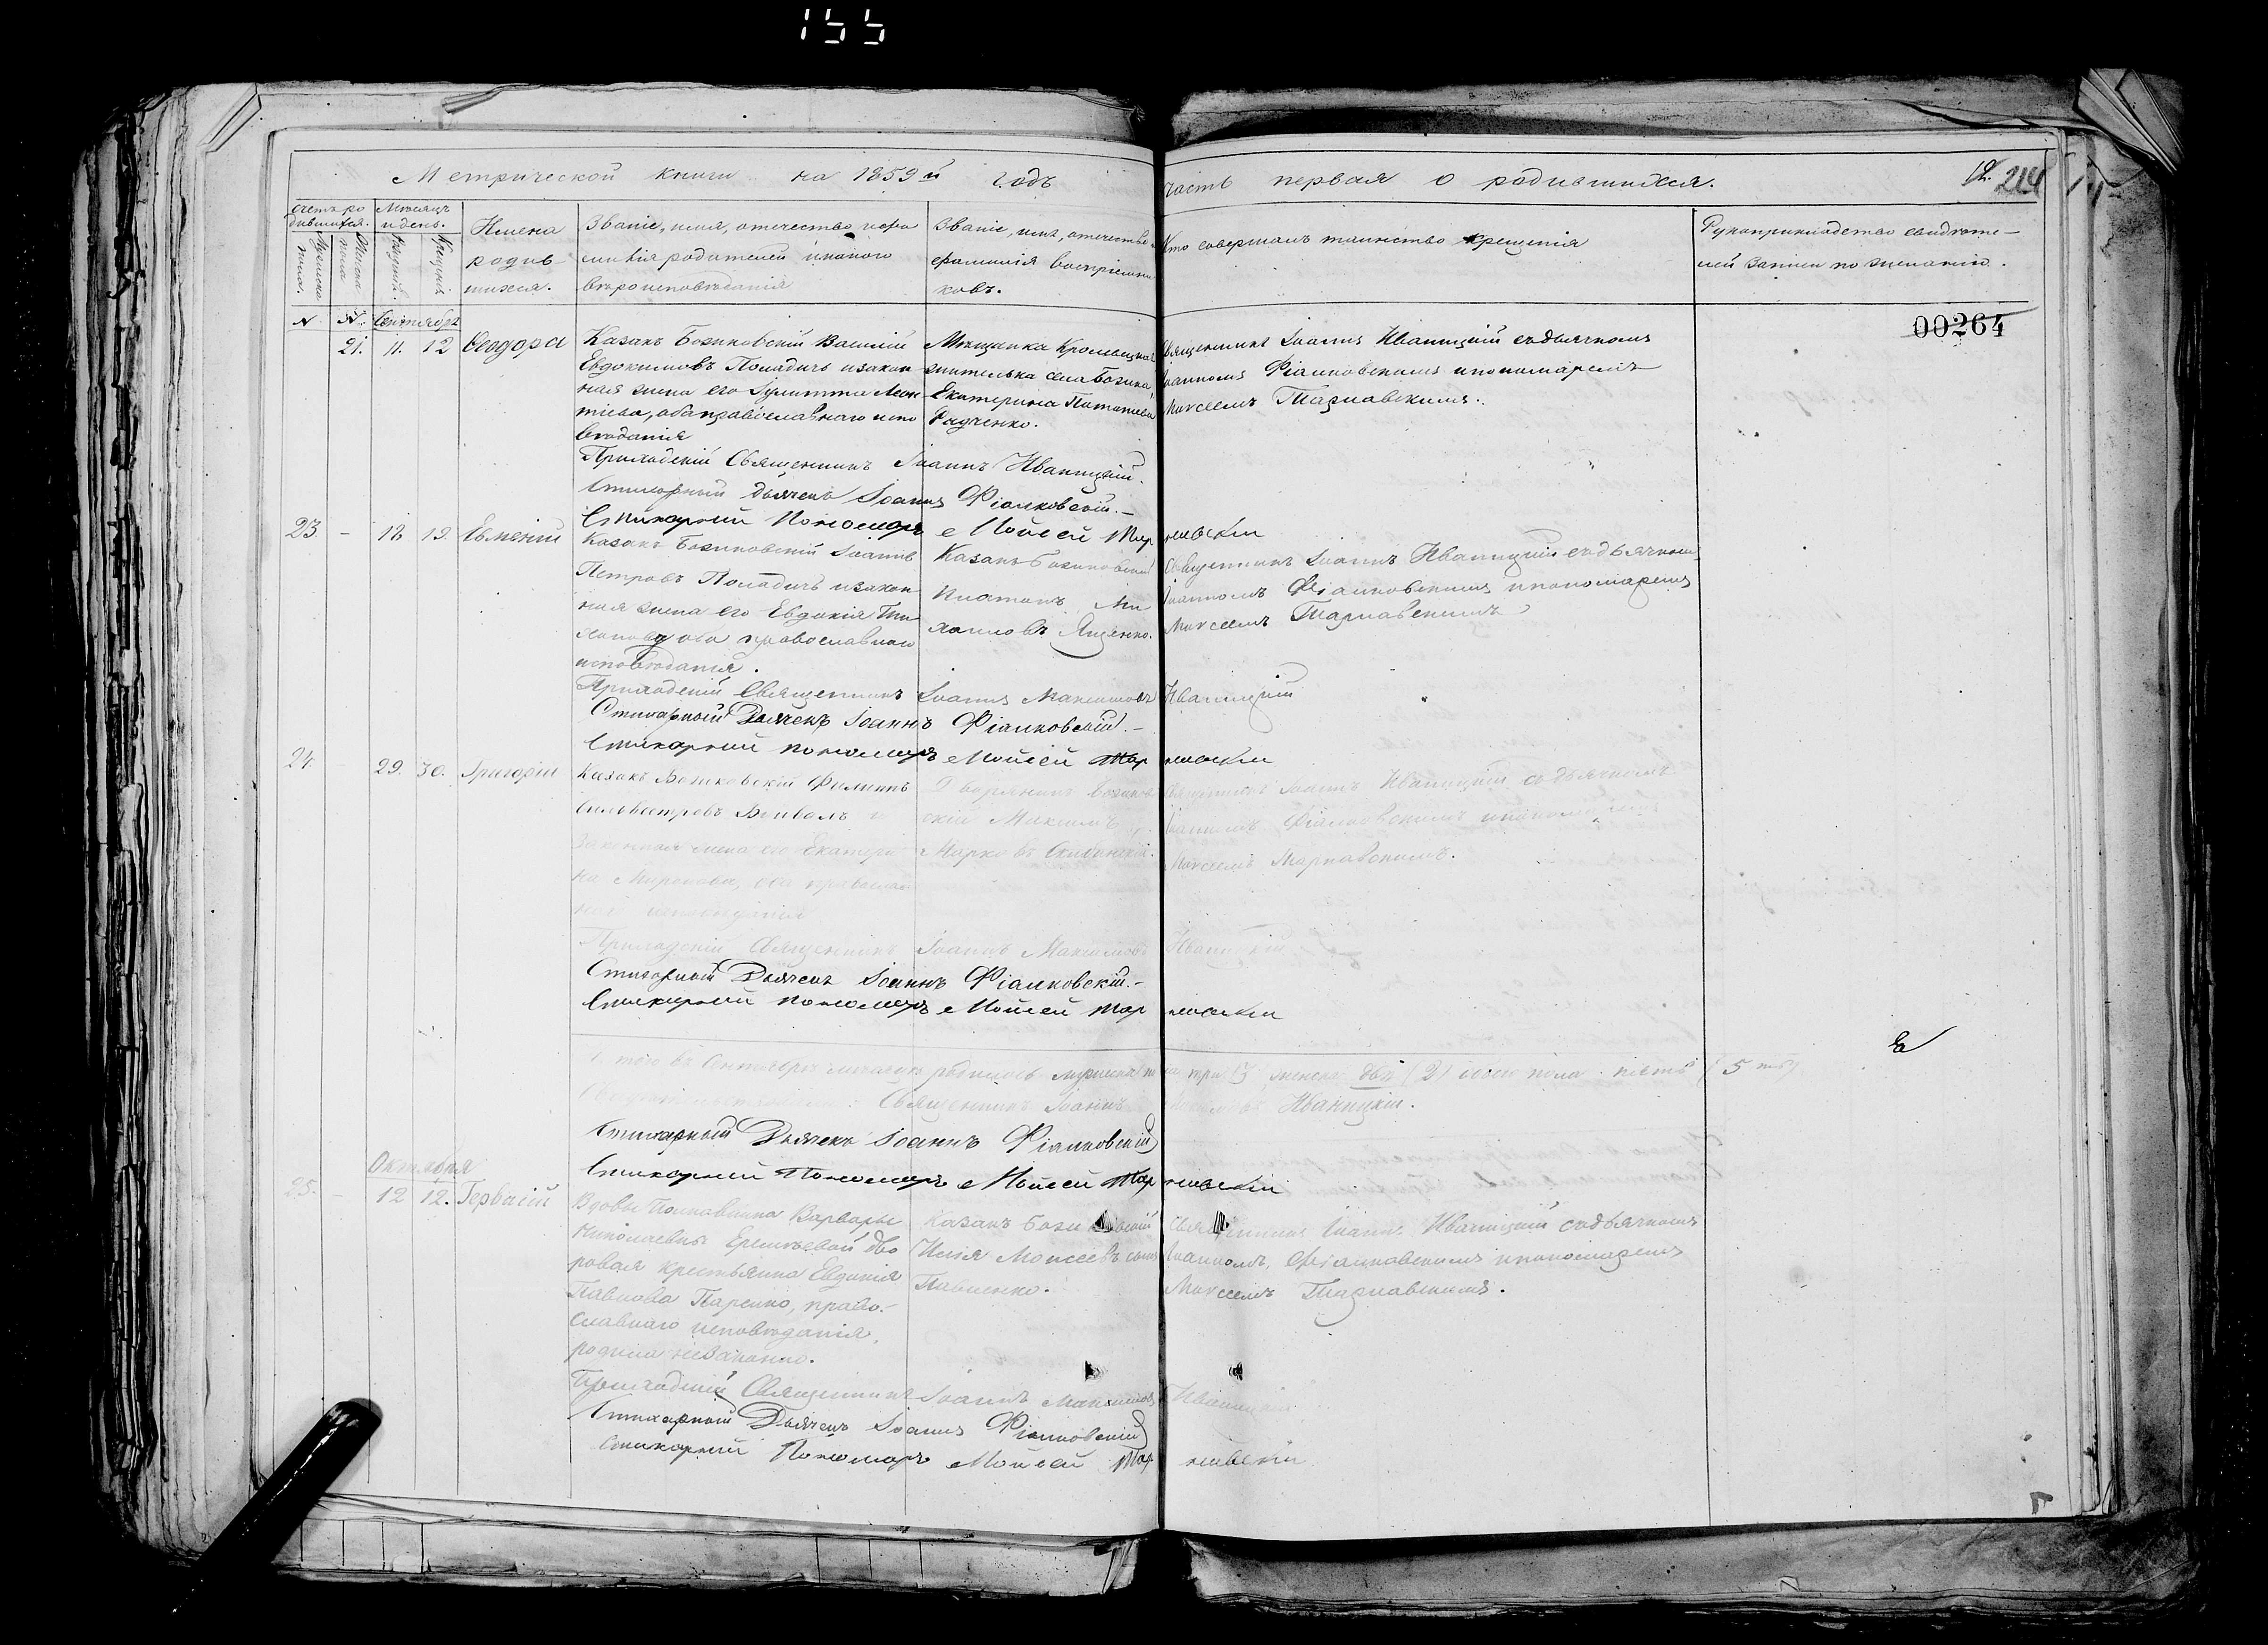 155
Метрической книги на 1859й годъ часть первая о родившихся.
12. 214
счетъ ро
дившихся.
Мужеска
пола.
Женска
пола
Мѣсяцъ
и день.
Рожденія.
Крещенія.
Имена
родив
шихся.
Званіе, имя, отечество и фа
милія родителей и какого
вѣроисповѣданія
Званіе, имя, отечество и
фамилія воспріемни
ковъ.
Кто совершалъ таинство крещенія
Рукоприкладство свидѣте-
лей записи по желанію.
00264
N. N. Сентября
21. 11. 12 Ѳеодора
Казакъ Божковскій Василій
Евдокимовъ Поладичъ и закон
ная жена его Іулитта Леон
тіева, оба православнаго испо
вѣданія
Мѣщанка
жителька села Божка
Екатерина
Радченко.
Священникъ Іоаннъ Иваницкій съ дьячкомъ
Іоанномъ Фіалковскимъ и пономаремъ
Моѵсеемъ Тарнавскимъ.
Приходскій Священникъ Іоаннъ Иваницкій.
Стихарный дьячекъ Іоаннъ Фіалковскій.-
Стихарній Пономарь Мойсей Тарнавскій
23. - 18 19. Евменій
Казакъ Божковскій Іоаннъ
Петровъ Поладичъ и закон
ная жена его Евдокія Ти
оба православнаго
исповѣданія.
Казакъ Божковскій
Платонъ Ми
хаиловъ Яценко.
Священникъ Іоаннъ Иваницкій съ дьячкомъ
Іоанномъ Фіалковскимъ и пономаремъ
Моѵсеемъ Тарнавскимъ
Приходскій Священникъ Іоаннъ Максимовъ Иваницкій
Стихарный Дьячекъ Іоаннъ Фіалковскій.-
Стихарній пономарь Мойсей Тарнавскій
24. - 29. 30. Григорій
Казакъ Божковскій Филиппъ
Сильвестровъ и
Законная жена его Екатери
на Миронова, оба православ
наго исповѣданія
Дворянинъ Божков
скій Максимъ
Марковъ
Священникъ Іоаннъ Иваницкій съ дьячкомъ
Іоанномъ Фіалковскимъ и пономаремъ
Моѵсеемъ Тарнавскимъ.
Приходскій Священникъ Іоаннъ Максимовъ Иваницкій
Стихарный Дьячекъ Іоаннъ Фіалковскій.-
Стихарній пономарь Мойсей Тарнавскій
И того въ Сентябрѣ мѣсяцѣ родилось мужеска пола три 3 женска двѣ (2) обоего пола пять (5ть)
Священникъ Іоаннъ Максимовъ Иваницкій.
Стихарный Дьячекъ Іоаннъ Фіалковскій
Стихарній Пономарь Мойсей Тарнавскій
Октября
25. 12 12. Гервасій
Вдовы Варвары
Николаевны дво
ровая крестьянка Евдокія
Павлова Паренко, право-
славнаго исповѣданія,
родила незаконно.
Казакъ Божковскій
Илія Моисеевъ сынъ
Павленко.
Священникъ Іоаннъ Иваницкій съ дьячкомъ
Іоанномъ Фіалковскимъ и пономаремъ
Моѵсеемъ Тарнавскимъ.
Приходскій Священникъ Іоаннъ Максимовъ Иваницкій
Стихарный Дьячекъ Іоаннъ Фіалковскій
Стихарній Пономарь Мойсей Тарнавскій